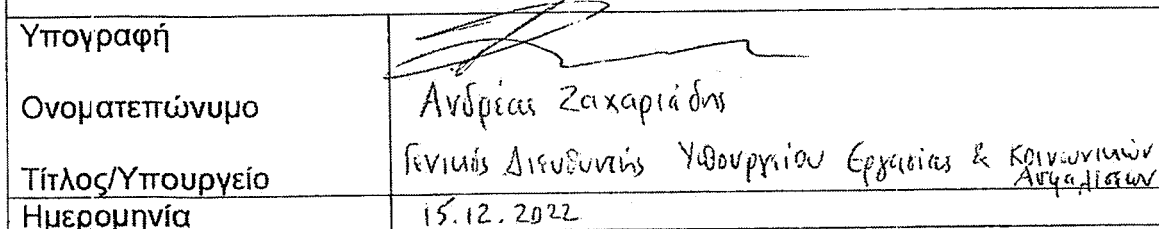 Υπογραφή
Ονοματεπώνυμο Ανδρέας Ζαχαριάδης
Τίτλος/Υπουργείο Γενικός Διευθυντής Υπουργείου Εργασίας & Κοινωνικών
Ασφαλίσεων
Ημερομηνία 15.12.2022